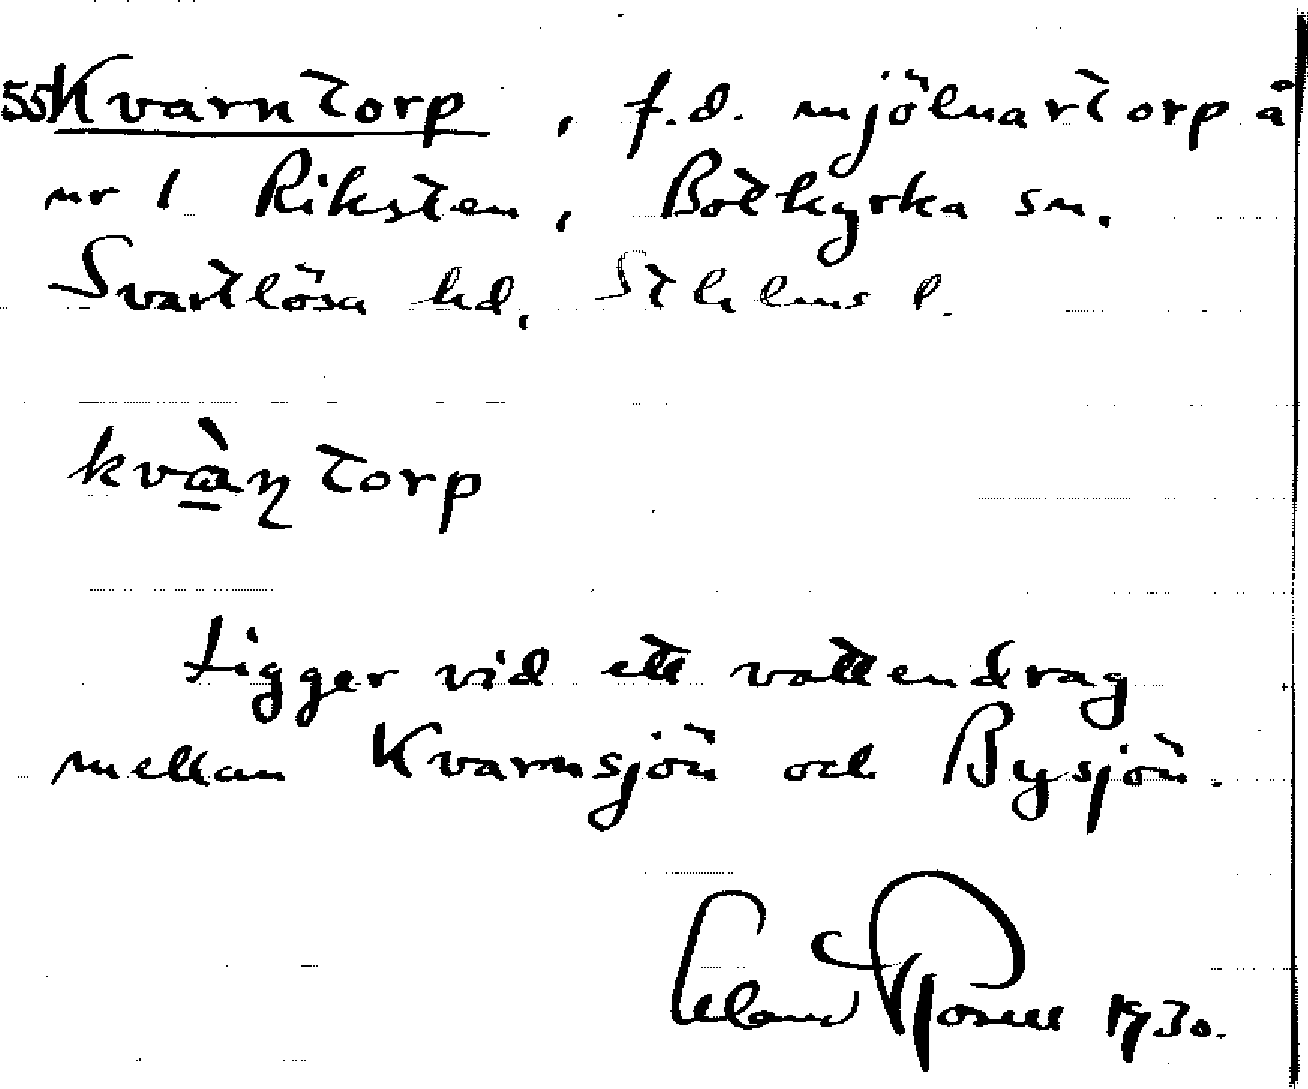 55 Kvarntorp, f.d. mjölnartorp å
nr 1 Riksten, Botkyrka sn.
Svartlösa hd, Sthlms l.
kvàɳtorp
Ligger vid ett vattendrag
mellan Kvarnsjön och Bysjön.
1930.